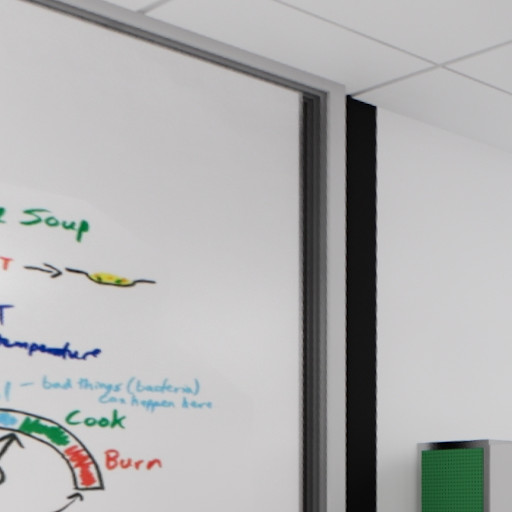 Soup
T
temperature
- bad things (bacteria)
can happen here
Cook
Burn